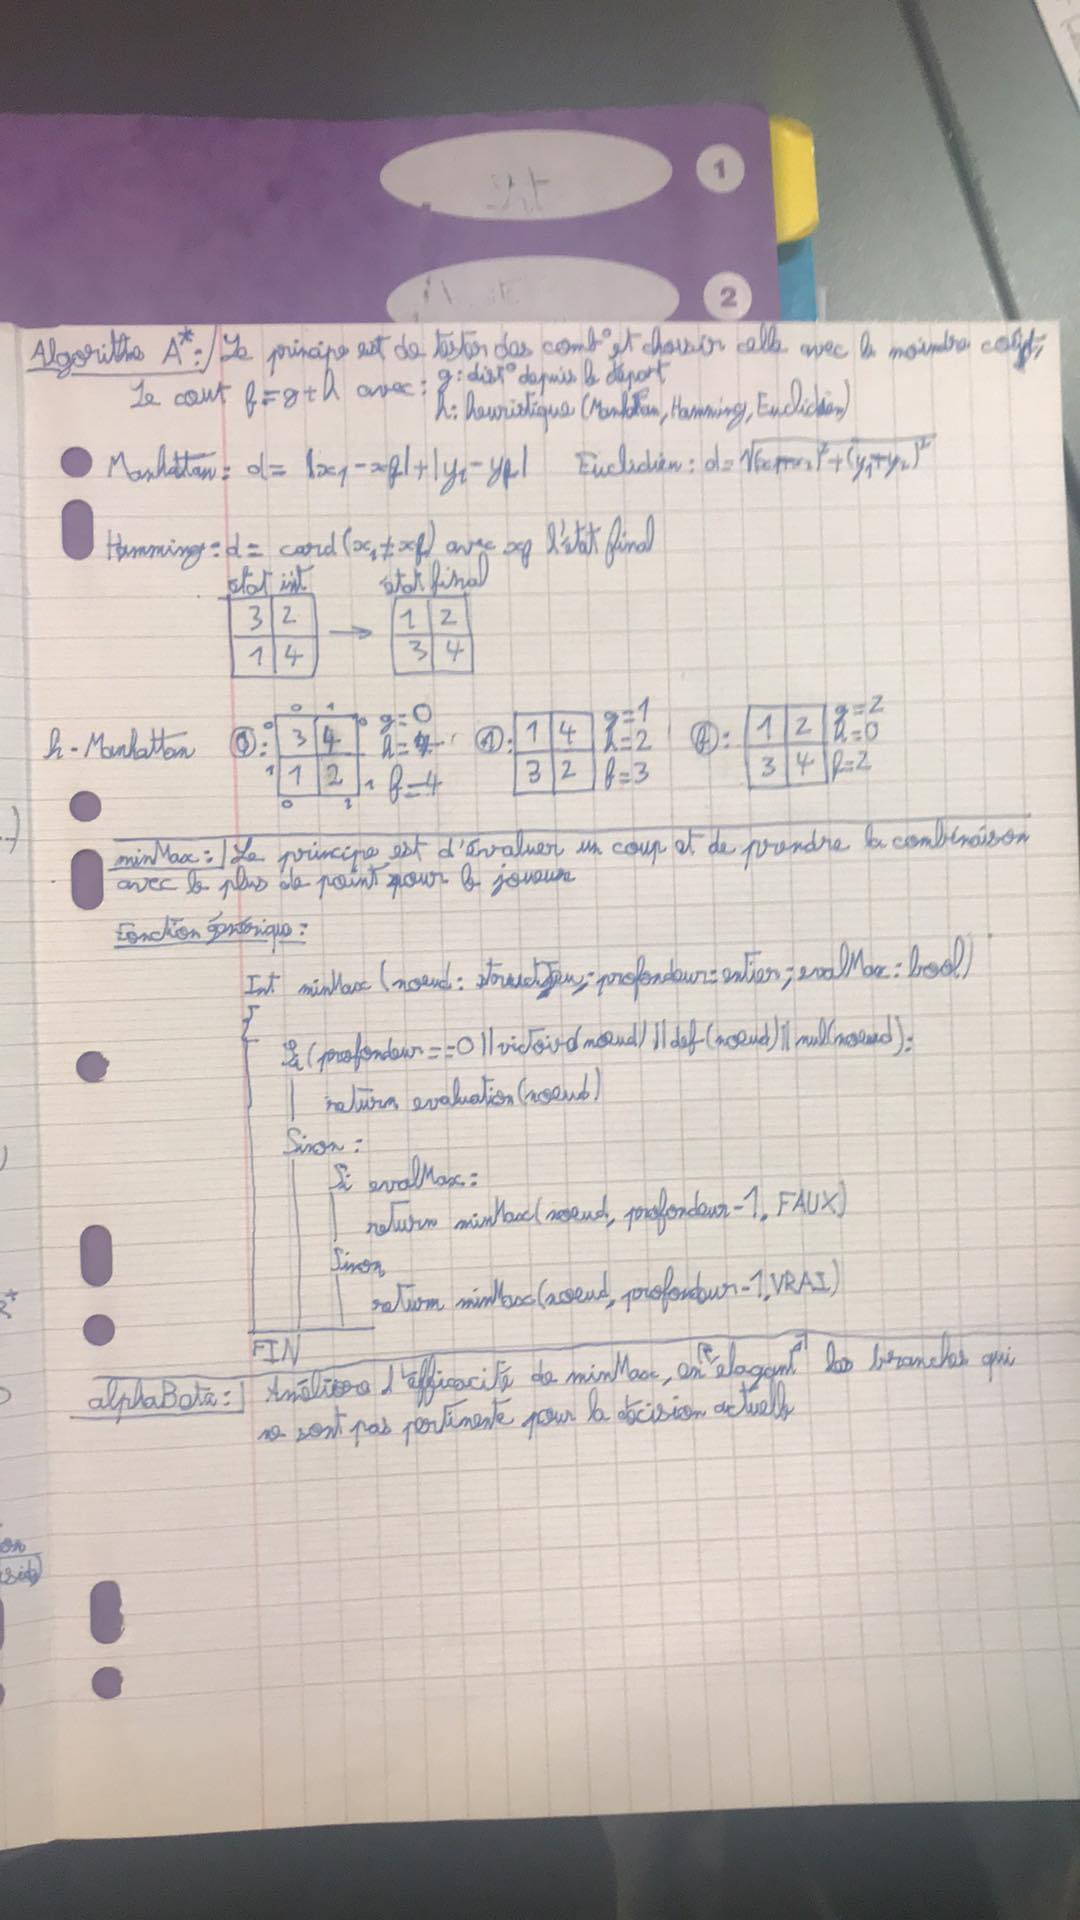 1
2
Algorithe A*: Le principe est de tester des comb° et choisir celle avec le moindre
Le cout f = g + h avec: g: dist° depuis le départ
h: heuristique (Manhattan, Hamming, Euclidien)
Manhattan: d = |x1 - xf| + |y1 - yf| Euclidien: d =
Hamming: d = card(x1 ≠ xf) avec xf l'état final
état init état final
3 2 → 1 2
1 4 3 4
0 1
h-Manhattan 0: 3 4 g=0 1: 1 4 g=1 2: 1 2 g=2
1 2 h=4 3 2 h=2 3 4 h=0
f=4 f=3 f=2
minMax: Le principe est d'évaluer un coup et de prendre la combinaison
avec le plus de point pour le joueur
Fonction générique:
Int minMax (noeud: structJeu; profondeur: entier; evalMax: bool)
{
Si (profondeur == 0 || victoire(noeud) || def(noeud) || nul(noeud):
return evaluation(noeud)
Sinon:
Si evalMax:
return minMax(noeud, profondeur-1, FAUX)
Sinon
return minMax(noeud, profondeur-1, VRAI)
FIN
alphaBeta: Améliore l'efficacité de minMax, en "élagant" les branches qui
ne sont pas pertinente pour la décision actuelle